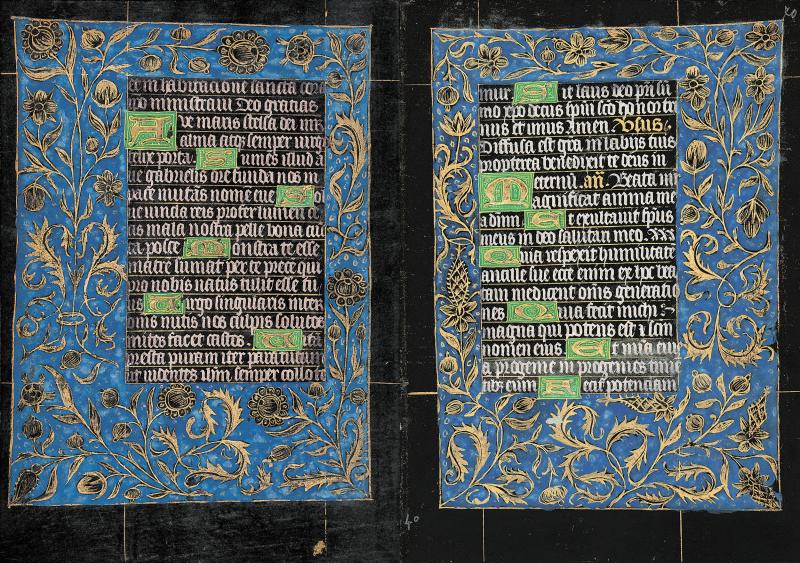 et in habitacione sancta cora
ipo ministraui Deo gratias
Aue maris stella dei ma
alma atqz semper uirgo
felix porta. Sumes illud a
ue gabrielis ore funda nos in
pace mutans nomē eue Sol
ue uincla reis profer lumen ce
cis mala nostra pelle bona cū
ta posce Monstra te esse
matrē sumat per te prece qui
pro nobis natus tulit esse tu
us Uirgo singularis inter
omīs mitis nos culpis solutos
mites fac et castos. Uitā
presta puram iter para tutū
ut uidentes ihm semper colle te
mur Sit laus deo pri su
mo xpo decus spiri sco honor tri
nus et unus Amen. Vsus.
Diffusa est gra in labijs tuis
propterea benedixit te deus in
eternū. añ. Beata mr
Magnificat anima me
a dnm Et exultauit spūs
meus in deo salutari meo.
Quia respexit humilitatē
ancille sue ecce enim ex hoc bea
tam me dicent om̄s generatio
nes Quia fecit michi
magna qui potens est & san
nomen eius. Et mīa eius
a progenie in progenies time
tibs eum Fecit potenciam
40